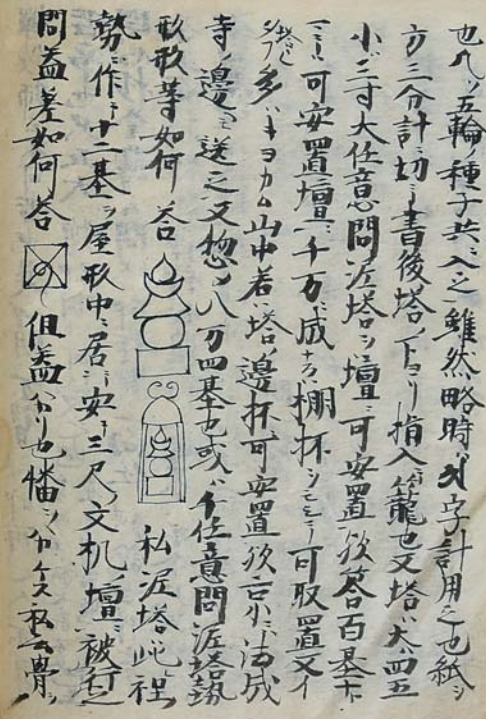 也凡ソ五輪ノ種子共ニ入之雖然略時ハ字計用之也紙ヲ
方三分計ニ切ニ書後塔ノ下ヨリ指入籠也又塔ハ大ハ四五
小ハ三寸大任意問泥塔ヲハ壇ニ可安置欤答百基千
ニハ可安置壇ニ千万ニ成ナハ棚杯シテ可取置又イ
多ハキヨカム山中若ハ塔ノ邊杯可安置欤云小ニ法成
寺ノ邊ニ送之又惣ノ八万四基也或ハ不任意問泥塔勢
形形等如何答
私泥塔此程
勢ニ作テ十二基ヲ屋形中ニ居テ安テ三尺ノ文机ノ壇ニ被行之
問蓋差如何答
但蓋ハカリ也幡ヲハカケス私云骨ヲ